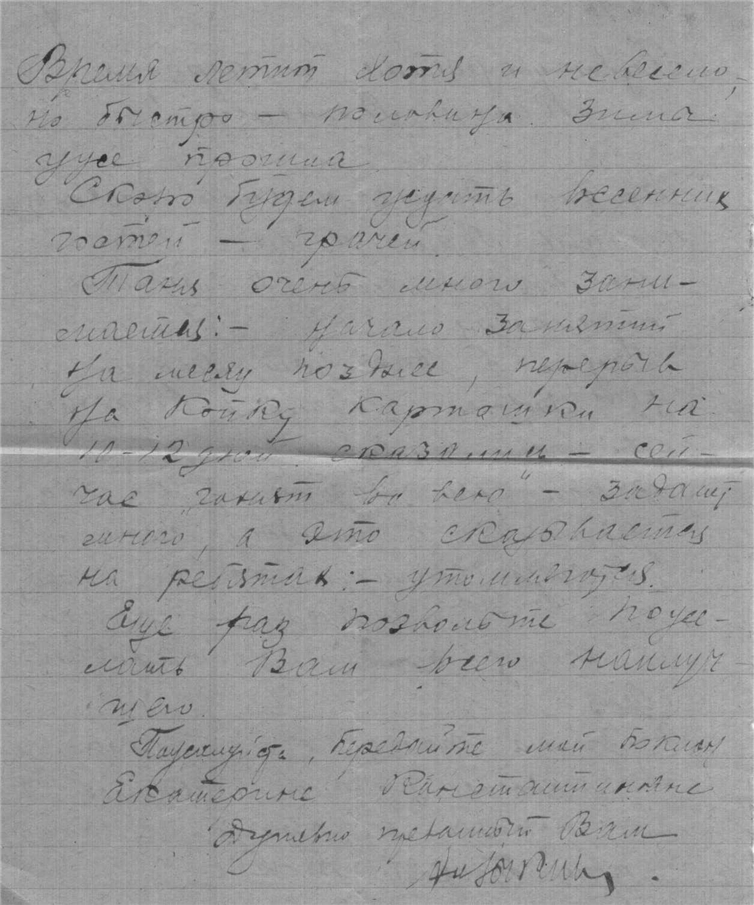 Время летит хотя и невесело,
но быстро — половина зима
уже прошла
Скоро будем ждать весенних
гостей — грачей.
Таня очень много зани-
мается: — начало занятий
на месяц позднее, перерыв
на копку картошки на
10-12 дней сказались — сей-
час "гонят во всю" — задают
много, а это сказывается
на ребятах: — утомляются.
Еще раз позвольте поже-
лать Вам всего наилуч-
шего.
Пожалуйста, передайте мой поклон
Екатерине Константиновне
Душевно преданный Вам